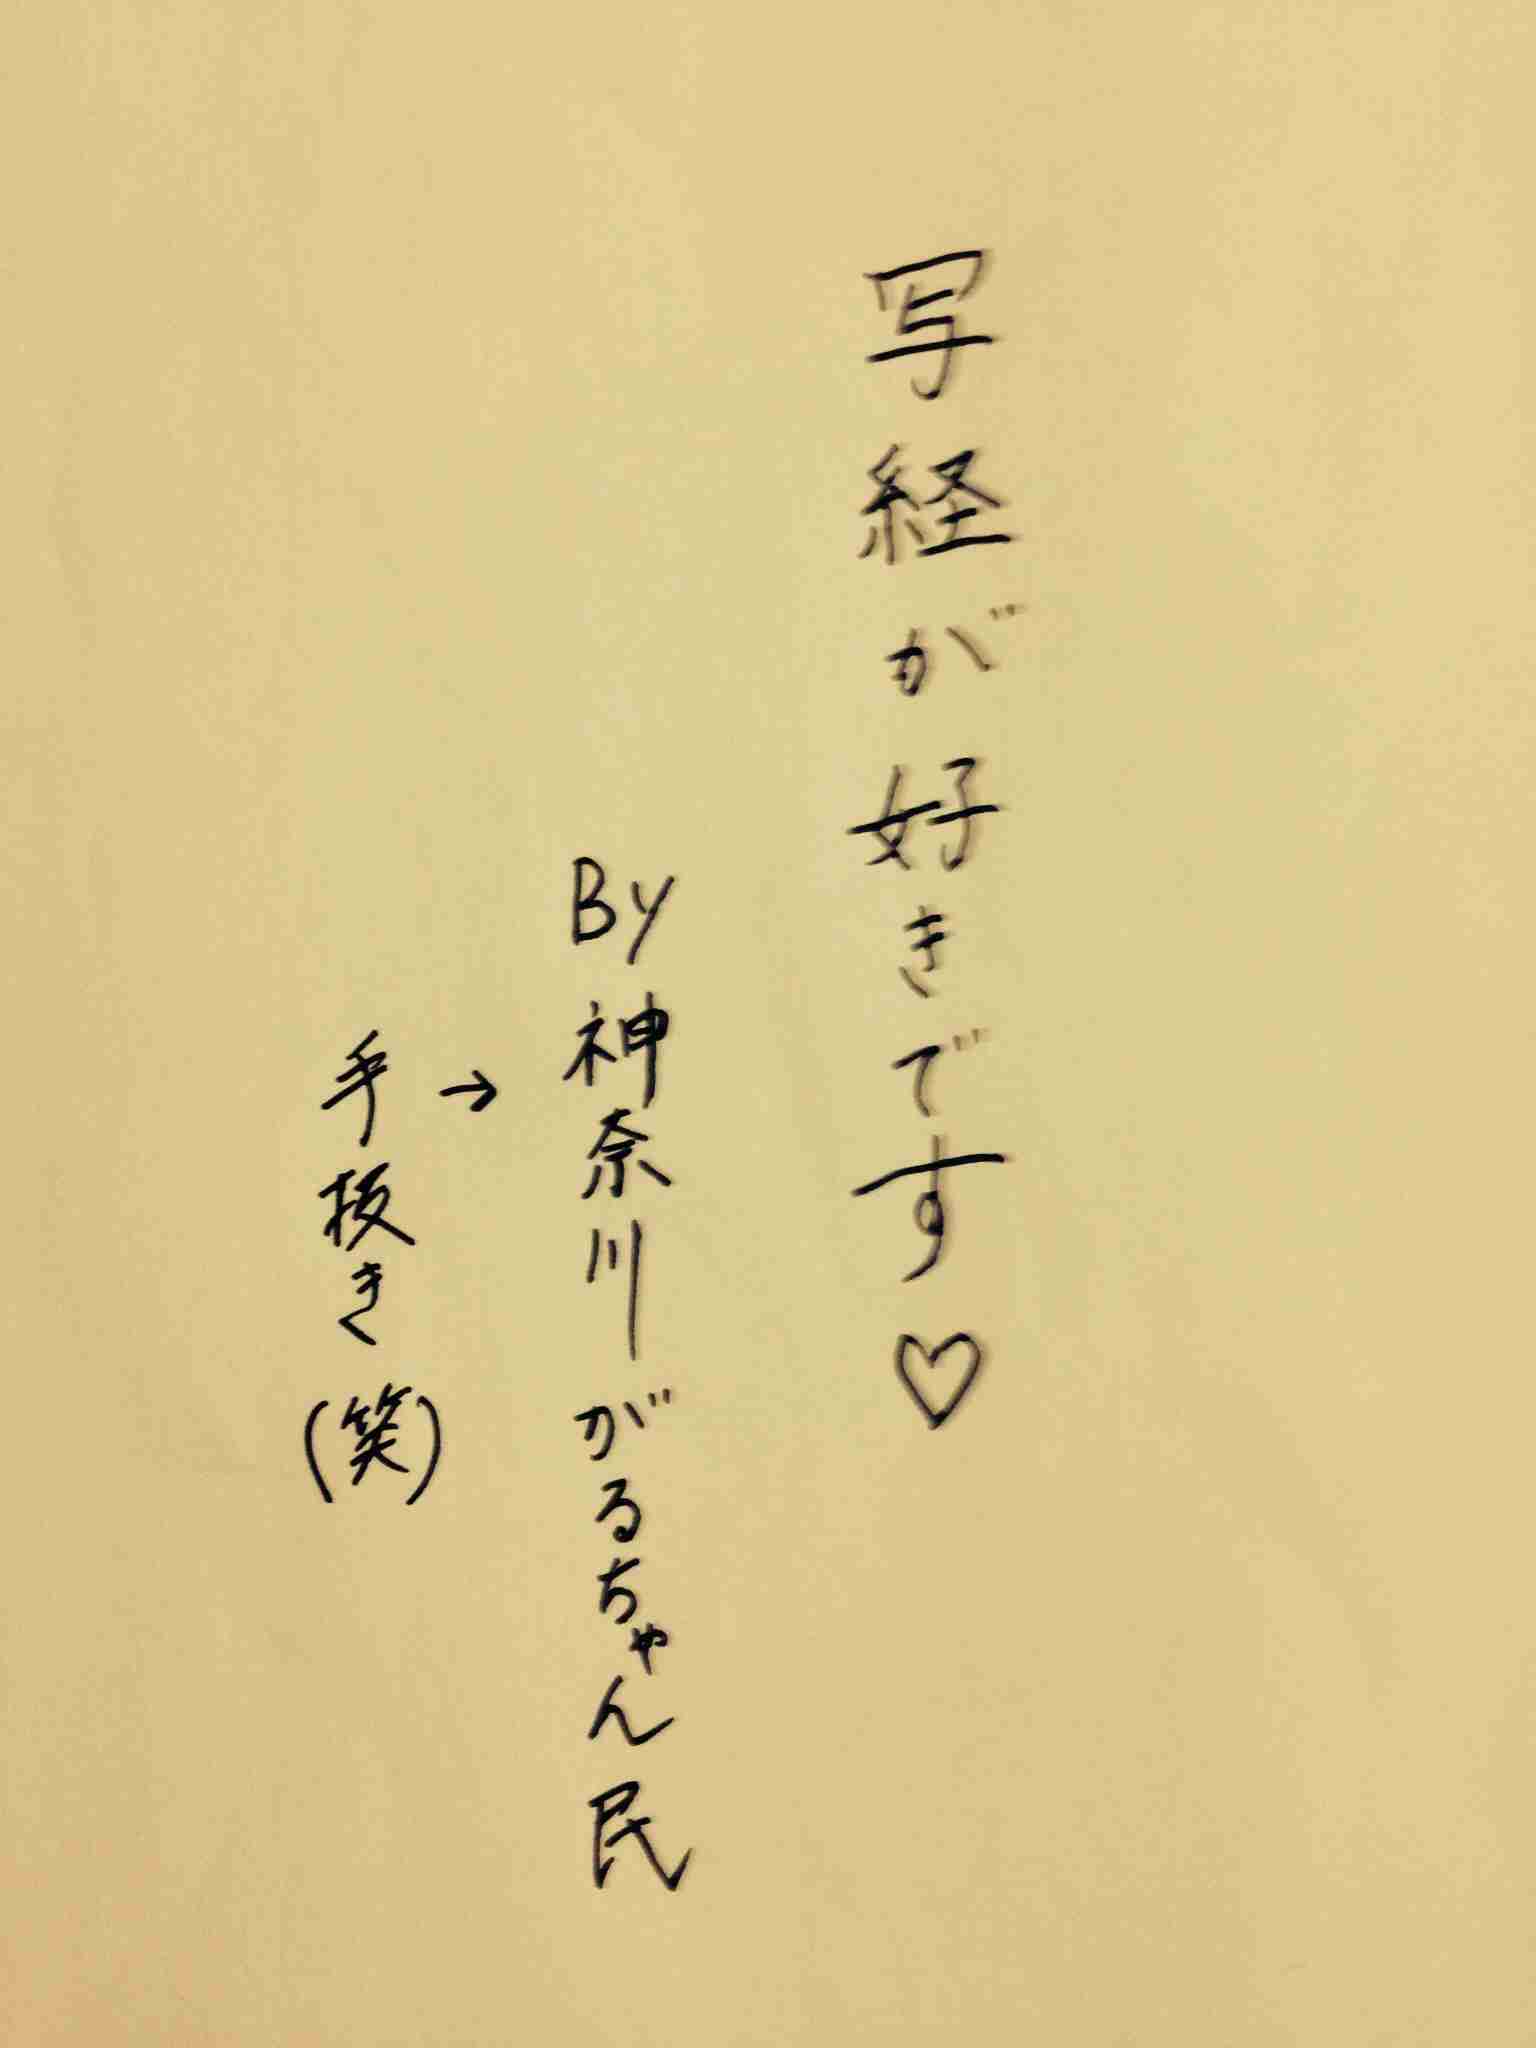 写経が好きです♡
By 神奈川がるちゃん民
→
手抜き(笑)